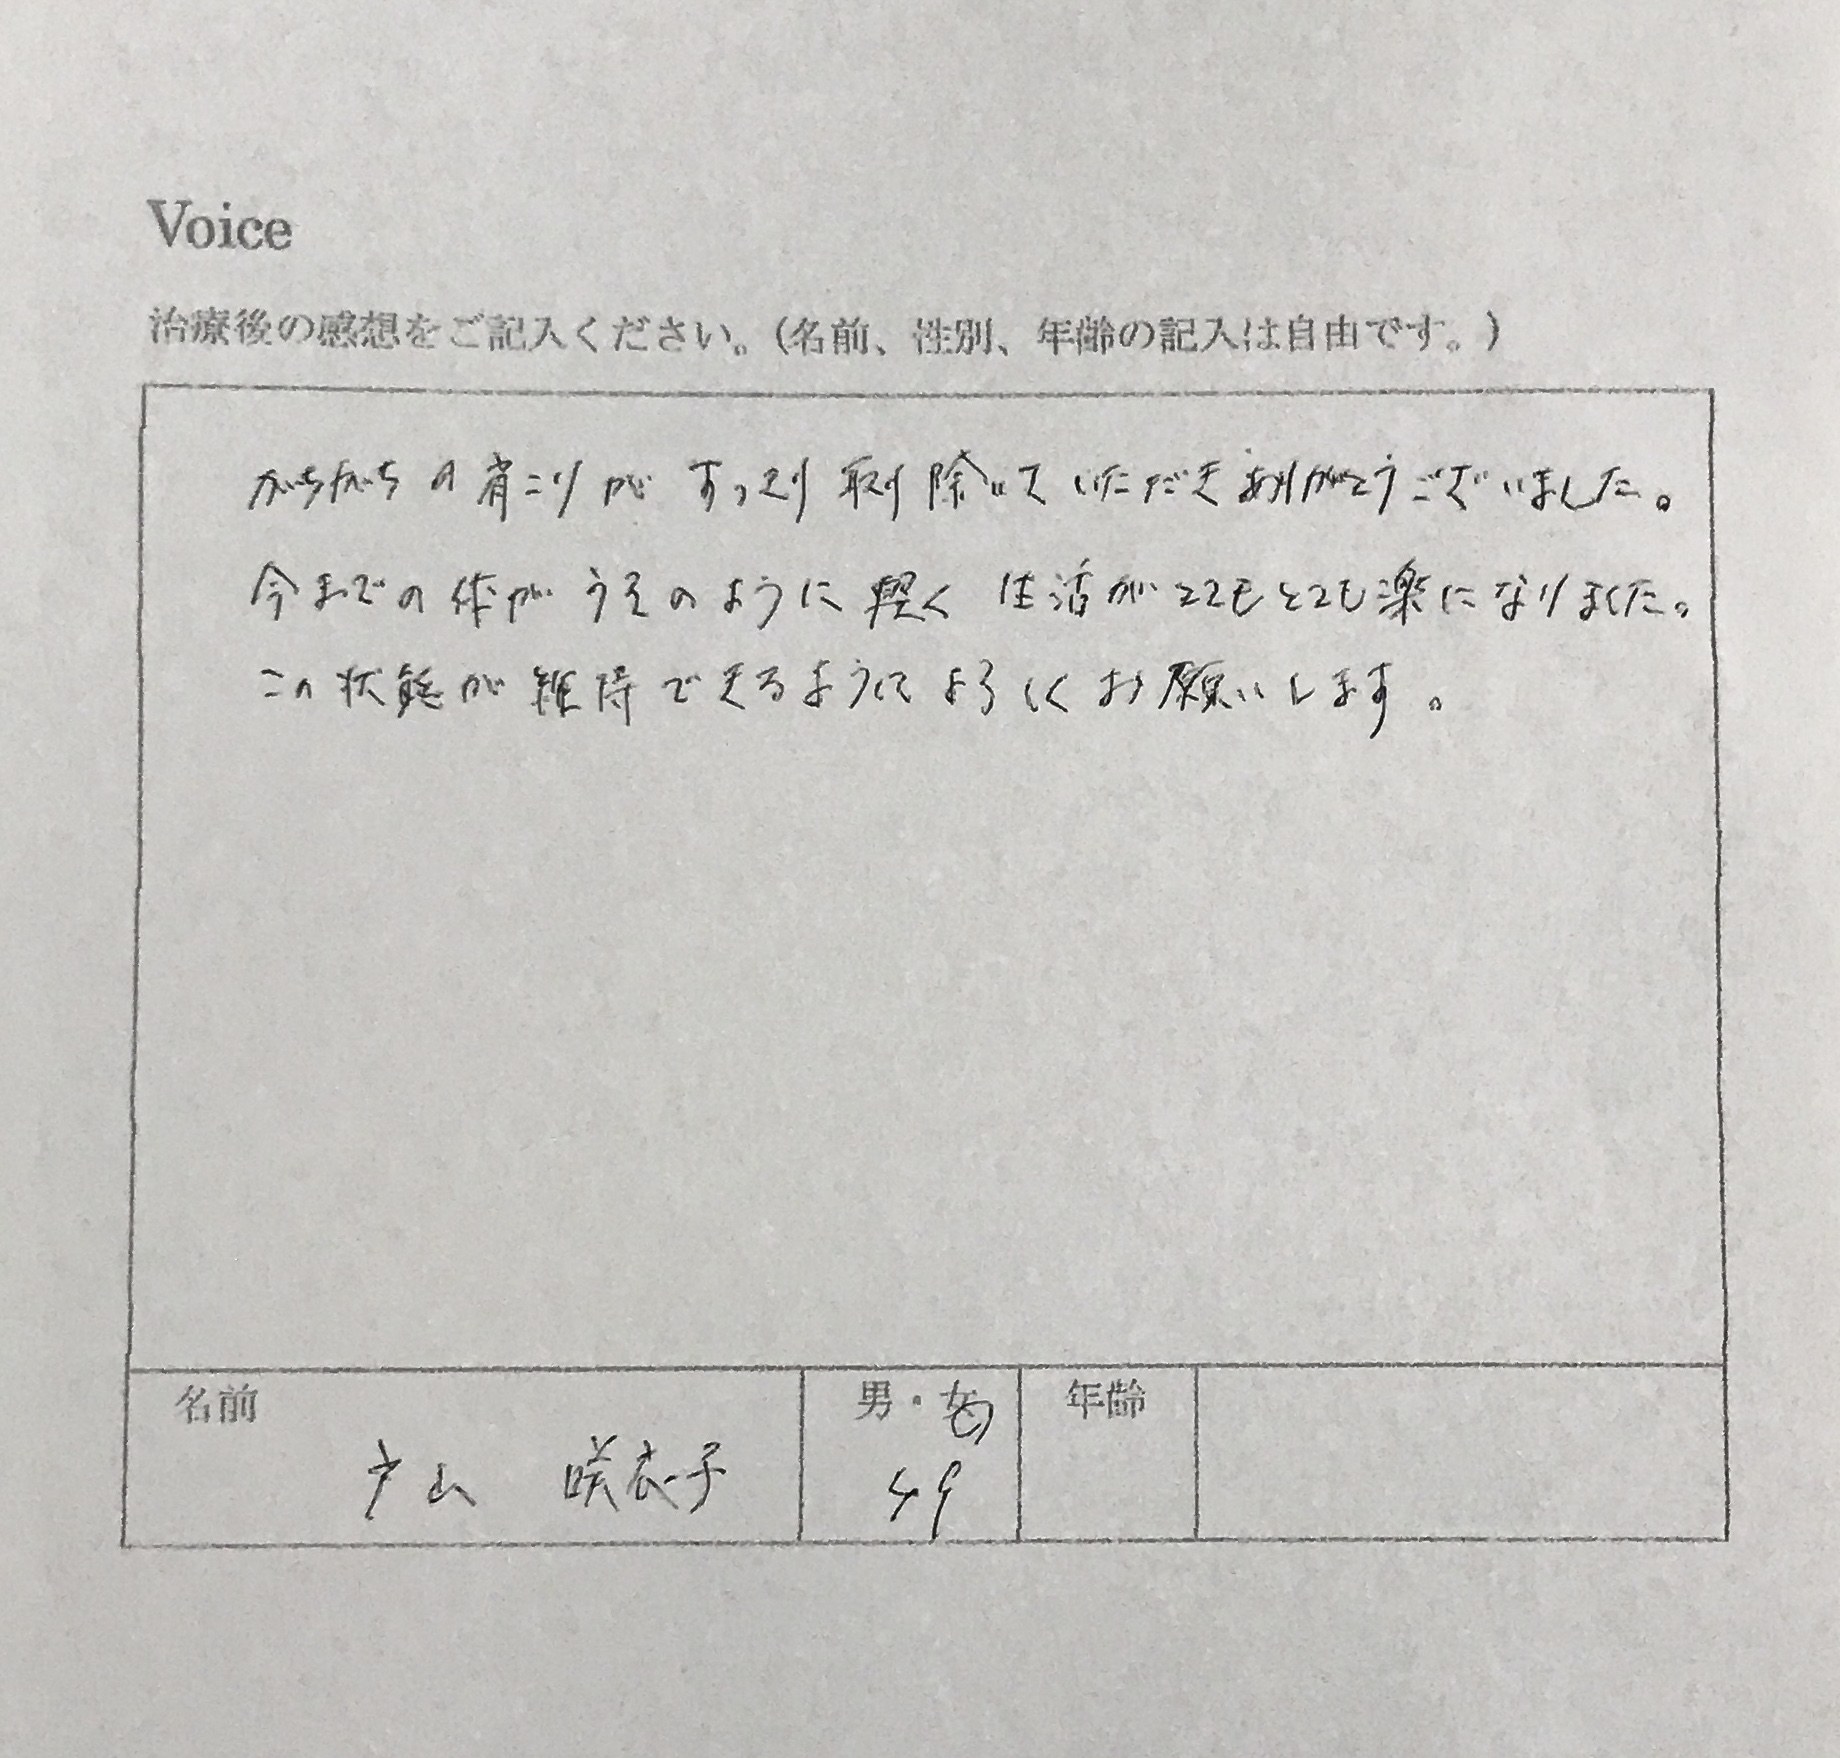 Voice
治療後の感想をご記入ください。(名前、性別、年齢の記入は自由です。)
がちがちの肩こりがすっきり取り除いていただきありがとうございました。
今までの体がうそのように軽く 生活がとてもとても楽になりました。
この状態が維持できるようによろしくお願いします。
名前 男・女 年齢
戸山 咲衣子 49